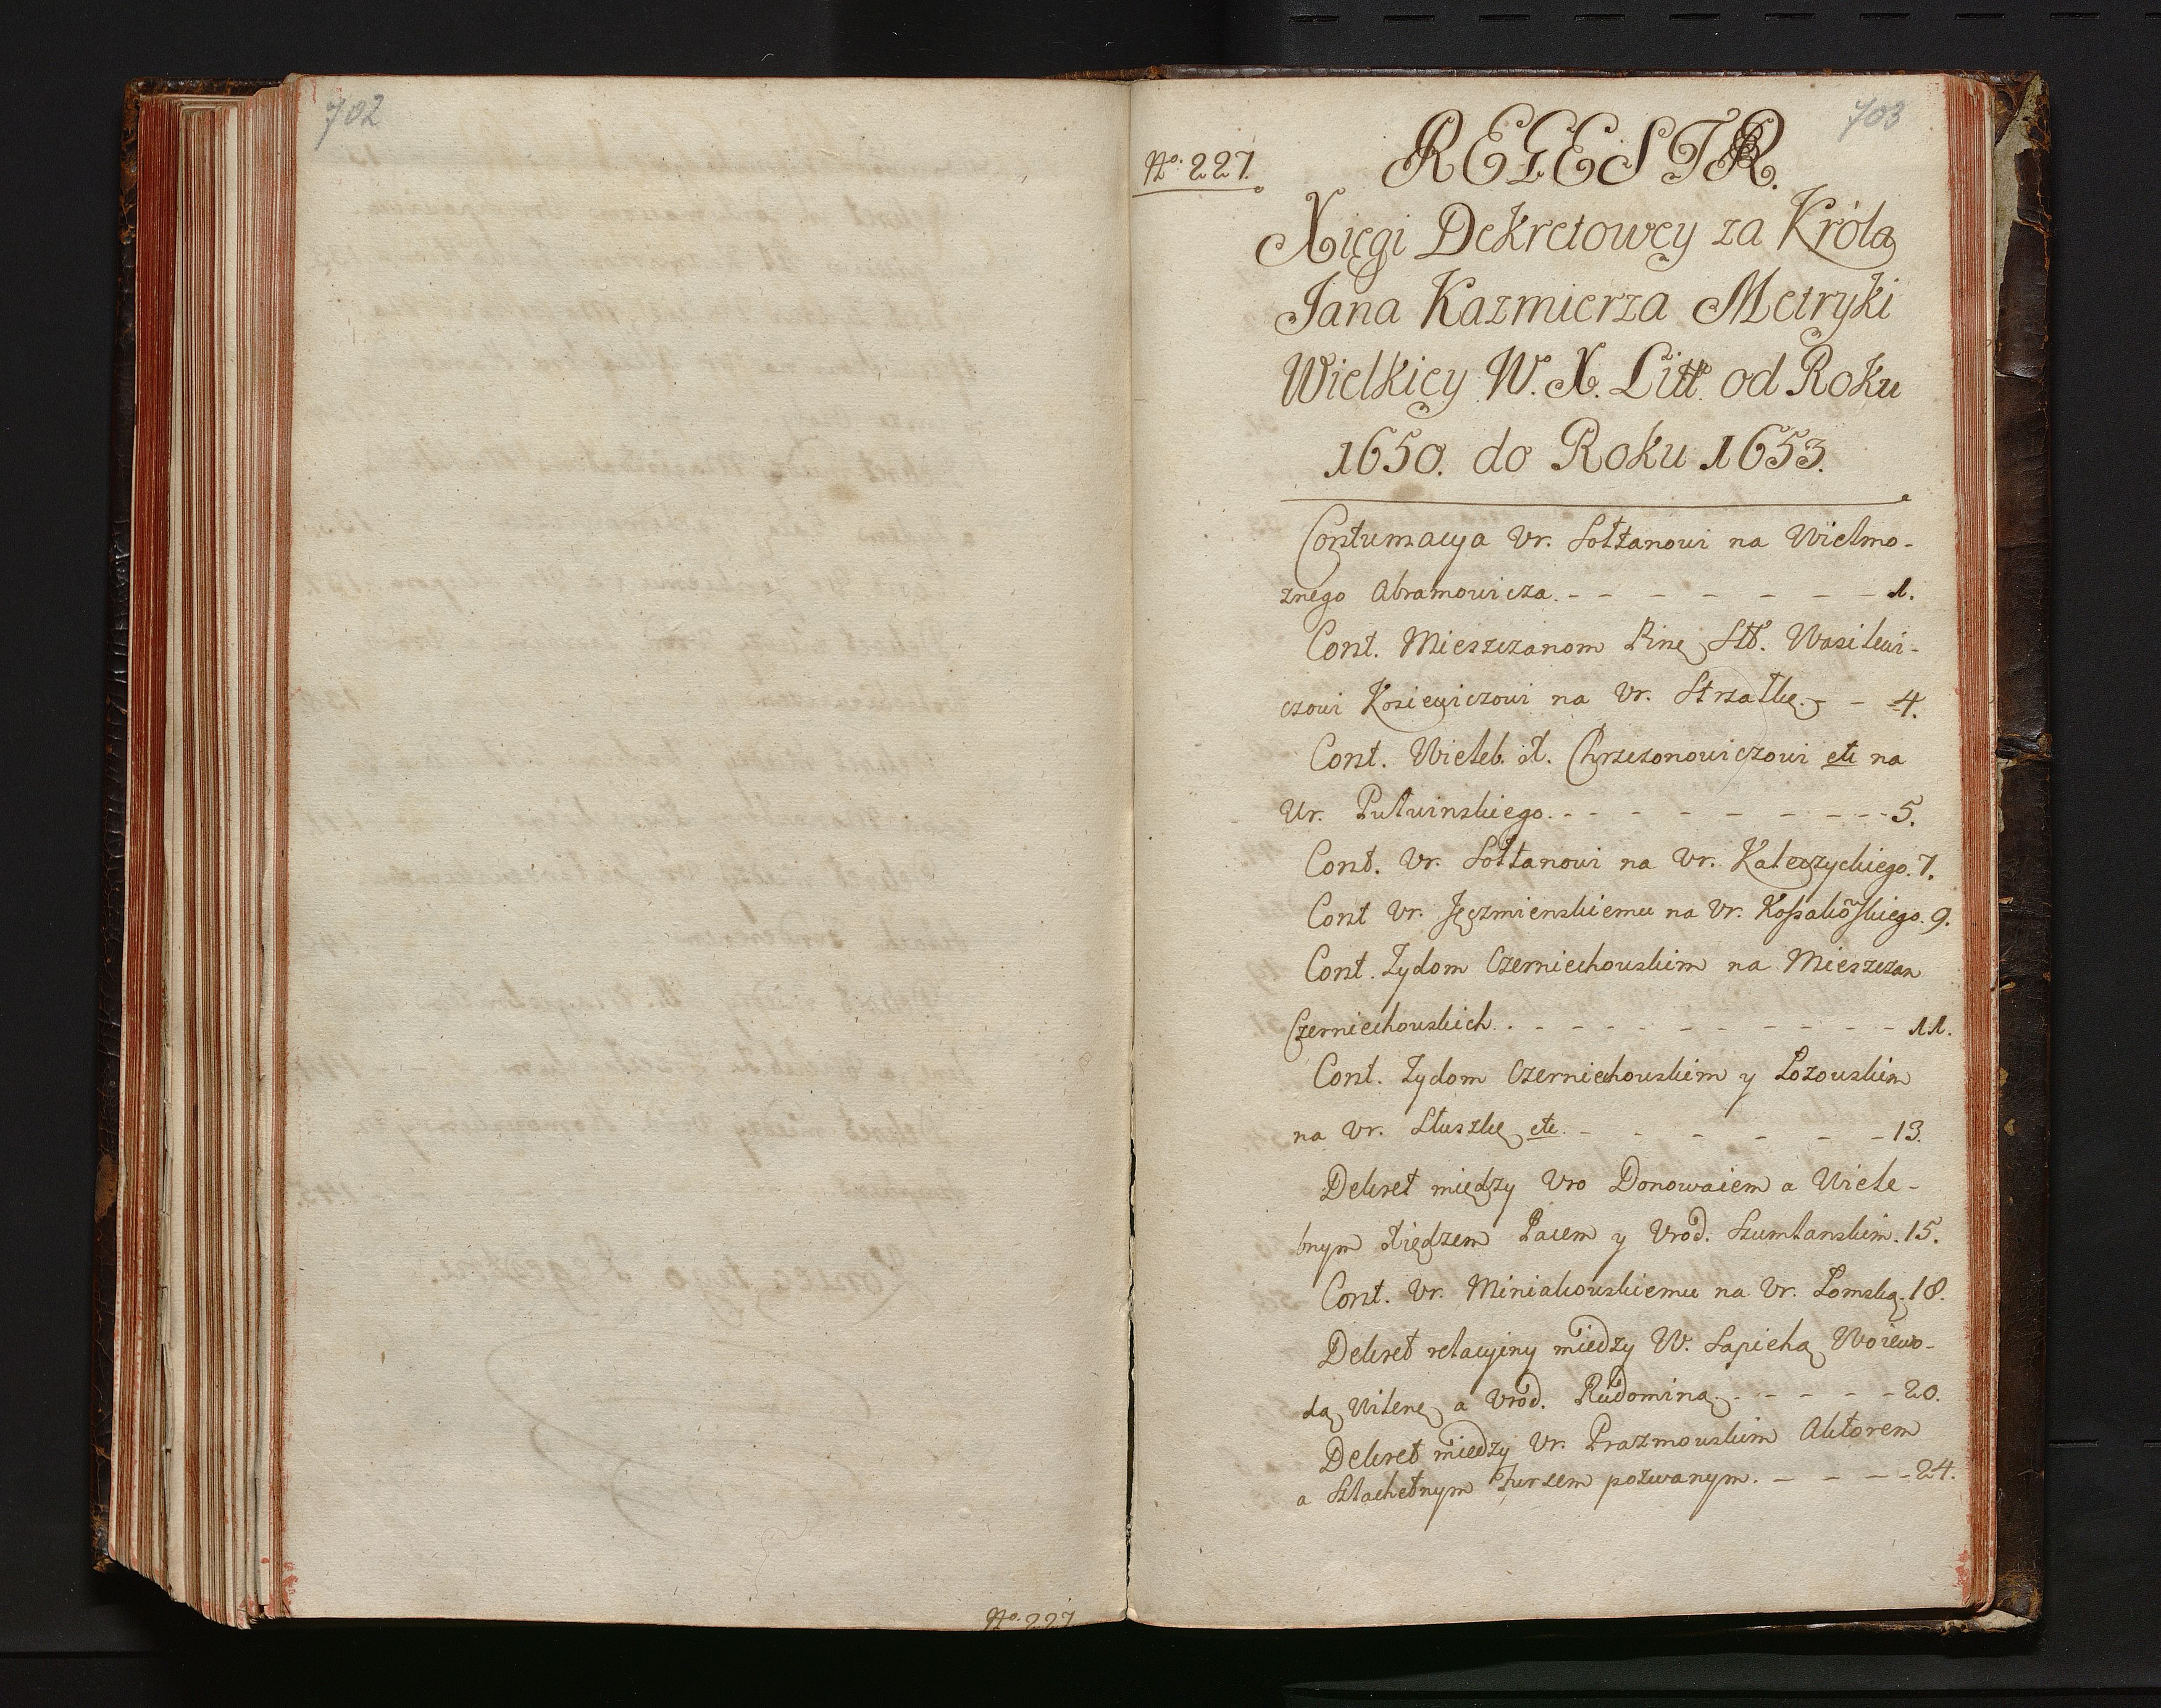 702
No. 227
703
No. 227.
REGESTR.
Xięgi Dekretowey za Króla
Jana Kazmierza Metryki
Wielkiey W. X. Litt. od Roku
1650. do Roku 1653.
Contumacya Ur. Sołtanowi na Wielmo-
znego Abramowicza. - - - - - - - 1.
Cont. Mieszczanom Pinę Wasilewi-
czowi Kosiewiczowi na Ur. Strzałkę. - - 4.
Cont. Wieleb. X. Chrzczonowiczowi etc na
Ur. Putwinskiego. - - - - - - - - - 5.
Cont. Ur. Sołtanowi na Ur. Kaleczyckiego. 7.
Cont Ur. Jęczmienskiemu na Ur. Kossakowskiego. 9.
Cont. Zydom Czerniechowskim na Mieszczan
Czerniechowskich. - - - - - - - - - - - 11.
Cont. Zydom Czerniechowskim y Łozowskim
na Ur. Słuszkę etc. - - - - - - - 13.
Dekret między Uro Donowaiem a Wiele-
bnym Xiędzem Pacem y Urod. Szumlanskim. 15.
Cont. Ur. Miniakowskiemu na Ur. Łomską. 18.
Dekret relacyiny miedzy W. Sapiehą Woiewo-
dą Wilenę a Urod. Rudominą. - - - - - 20.
Dekret miedzy Ur. Prazmowskim Aktorem
a Szlachetnym pozwanym. - - - - 24.